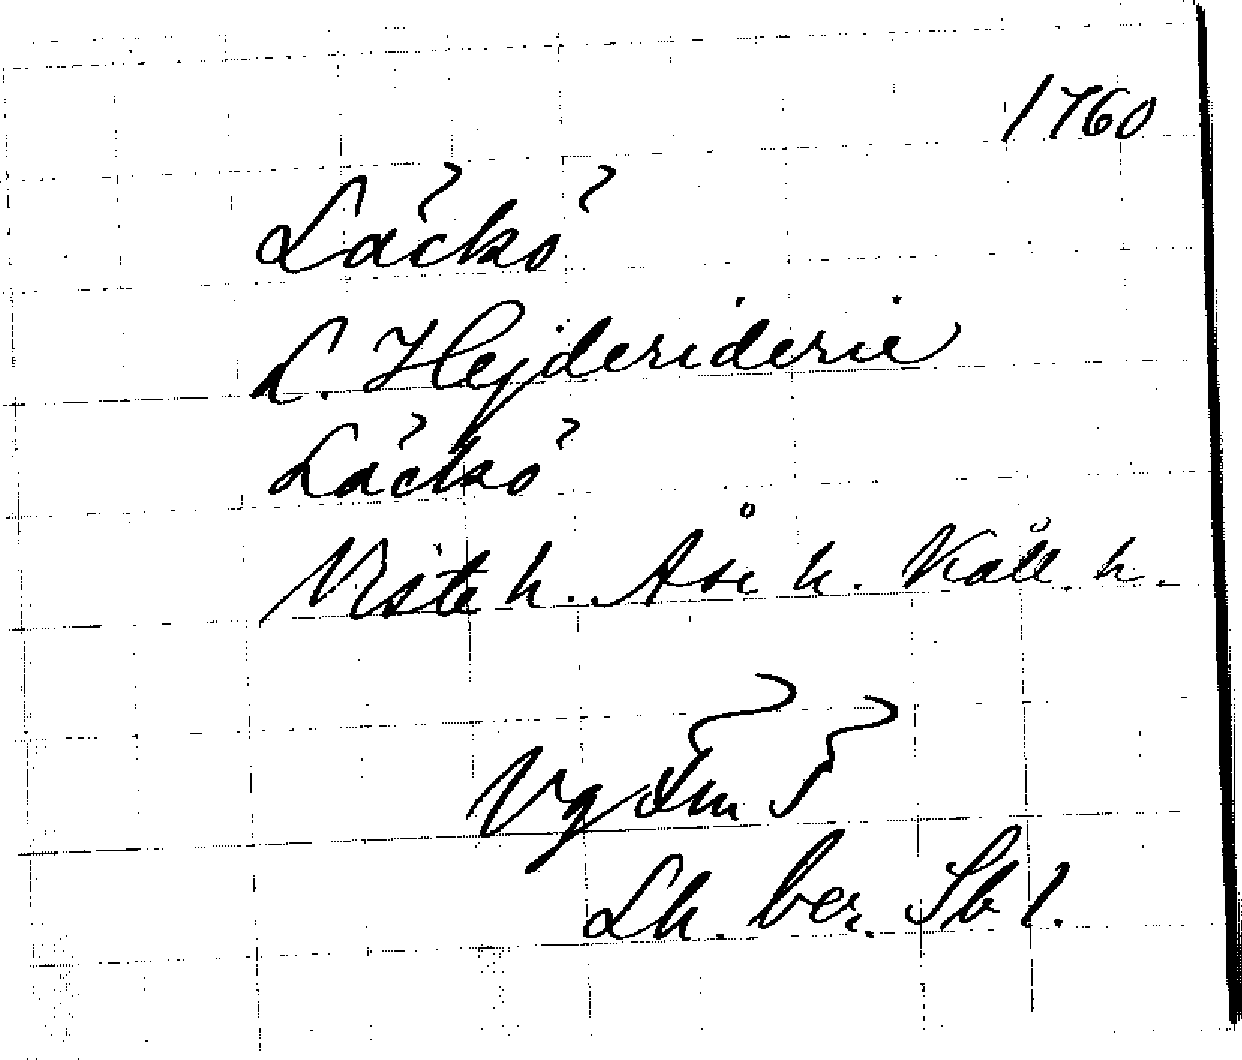 1760
Läckö
L. Hejderiderie
Läckö
Viste h. Åse h. Kåll. h.
Vg
Lh. ber. Sk 1.